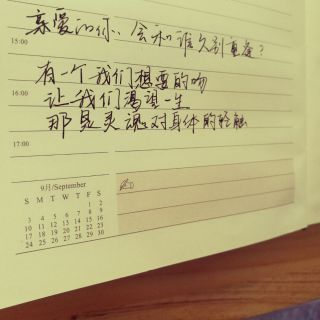 亲爱的你.. 会和谁久别重逢?
15:00
有一个我们想要的吻
16:00
让我们渴望一生
那是灵魂对身体的轻触
17:00
9月/September
S M T W T F S
1 2
3 4 5 6 7 8 9
10 11 12 13 14 15 16
17 18 19 20 21 22 23
24 25 26 27 28 29 30